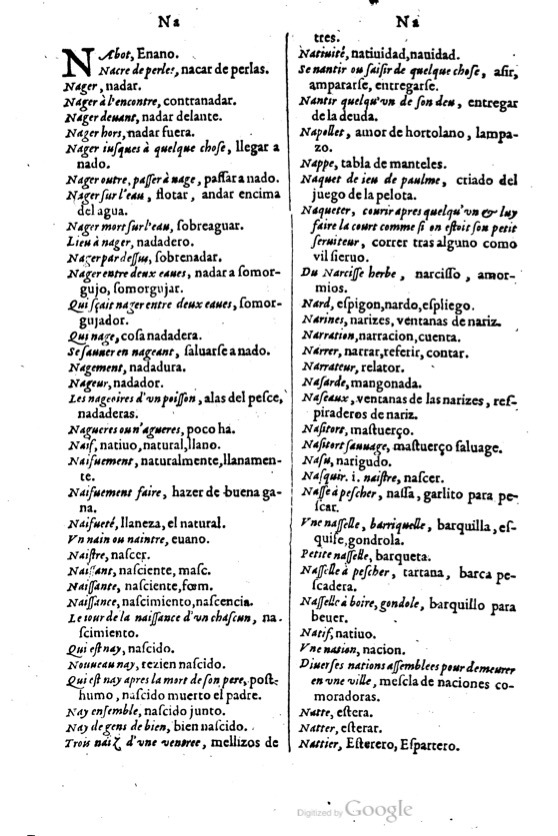 Na
NAbot, Enano.
Nacre de perles, nacar de perlas.
Nager, nadar.
Nager à l'encontre, contranadar.
Nager deuant, nadar delante.
Nager hors, nadar fuera.
Nager iusques à quelque chose, llegar a
nado.
Nager outre, passer à nage, passar a nado.
Nager sur l'eau, flotar, andar encima
del agua.
Nager mort sur l'eau, sobreaguar.
Lieu à nager, nadadero.
Nager par dessus, sobrenadar.
Nager entre deux eaues, nadar a somor-
gujo, somorgujar.
Qui sçait nager entre deux eaues, somor-
gujador.
Qui nage, cosa nadadera.
Se sauuer en nageant, saluarse a nado.
Nagement, nadadura.
Nageur, nadador.
Les nageoires d'un poisson, alas del pesce,
nadaderas.
Nagueres ou n'agueres, poco ha.
Naif, natiuo, natural, llano.
Naifuement, naturalmente, llanamen-
te.
Naifuement faire, hazer de buena ga-
na.
Naifueté, llaneza, el natural.
Vn nain ou naintre, euano.
Naistre, nascer.
Naissant, nasciente, masc.
Naissante, nasciente, fœm.
Naissance, nascimiento, nascencia.
Le iour de la naissance d'vn chascun, na-
scimiento.
Qui est nay, nascido.
Nouueau nay, rezien nascido.
Qui est nay apres la mort de son pere, post-
humo, nascido muerto el padre.
Nay ensemble, nascido junto.
Nay de gens de bien, bien nascido.
Trois naiz d'vne ventree, mellizos de
Na
tres.
Natiuité, natiuidad, nauidad.
Se nantir ou saisir de quelque chose, asir,
ampararse, entregarse.
Nantir quelqu'vn de son deu, entregar
de la deuda.
Napollet, amor de hortolano, lampa-
zo.
Nappe, tabla de manteles.
Naquet de ieu de paulme, criado del
juego de la pelota.
Naqueter, courir apres quelqu'vn & luy
faire la court comme si on estoit son petit
seruiteur, correr tras alguno como
vil sieruo.
Du Narcisse herbe, narcisso, amor-
mios.
Nard, espigon, nardo, espliego.
Narines, narizes, ventanas de nariz.
Narration, narracion, cuenta.
Narrer, narrar, referir, contar.
Narrateur, relator.
Nasarde, mangonada.
Naseaux, ventanas de las narizes, res-
piraderos de nariz.
Nasitort, mastuerço.
Nasitort sauuage, mastuerço saluage.
Nasu, narigudo.
Nasquir. i. naistre, nascer.
Nasse à pescher, nassa, garlito para pe-
scar.
Vne nasselle, barriquelle, barquilla, es-
quife, gondrola.
Petite nasselle, barqueta.
Nasselle à pescher, tartana, barca pe-
scadera.
Nasselle à boire, gondole, barquillo para
beuer.
Natif, natiuo.
Vne nation, nacion.
Diuerses nations assemblees pour demeurer
en vne ville, mescla de naciones co-
moradoras.
Natte, estera.
Natter, esterar.
Nattier, Esterero, Espartero.
Digitized by Google